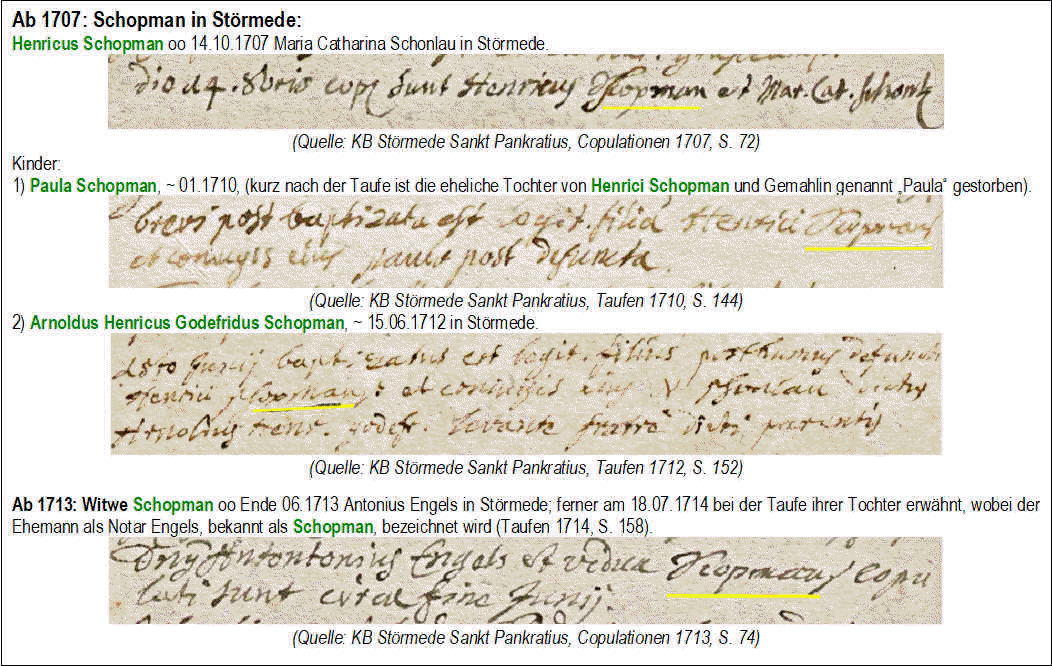 Ab 1707: Schopman in Störmede:
Henricus Schopman oo 14.10.1707 Maria Catharina Schonlau in Störmede.
dio 14. 8bris cop sunt Henricus Schopman et Mar. Cat. Schonl
(Quelle: KB Störmede Sankt Pankratius, Copulationen 1707, S. 72)
Kinder:
1) Paula Schopman, ~ 01.1710, (kurz nach der Taufe ist die eheliche Tochter von Henrici Schopman und Gemahlin genannt „Paula“ gestorben).
brevi post baptizata est legit. filia Henrici Schopman
et coniugis eius paulo post defuncta.
(Quelle: KB Störmede Sankt Pankratius, Taufen 1710, S. 144)
2) Arnoldus Henricus Godefridus Schopman, ~ 15.06.1712 in Störmede.
Junij baptizatus est legit. filius posthumus defuncti
Henrici Schopman et coniugis eius
Arnoldus Henr. godefr. levante fratre parentis
(Quelle: KB Störmede Sankt Pankratius, Taufen 1712, S. 152)
Ab 1713: Witwe Schopman oo Ende 06.1713 Antonius Engels in Störmede; ferner am 18.07.1714 bei der Taufe ihrer Tochter erwähnt, wobei der
Ehemann als Notar Engels, bekannt als Schopman, bezeichnet wird (Taufen 1714, S. 158).
Dnus Antontonius Engels et vidua Schopmans copu
lati sunt circa fine Junij.
(Quelle: KB Störmede Sankt Pankratius, Copulationen 1713, S. 74)